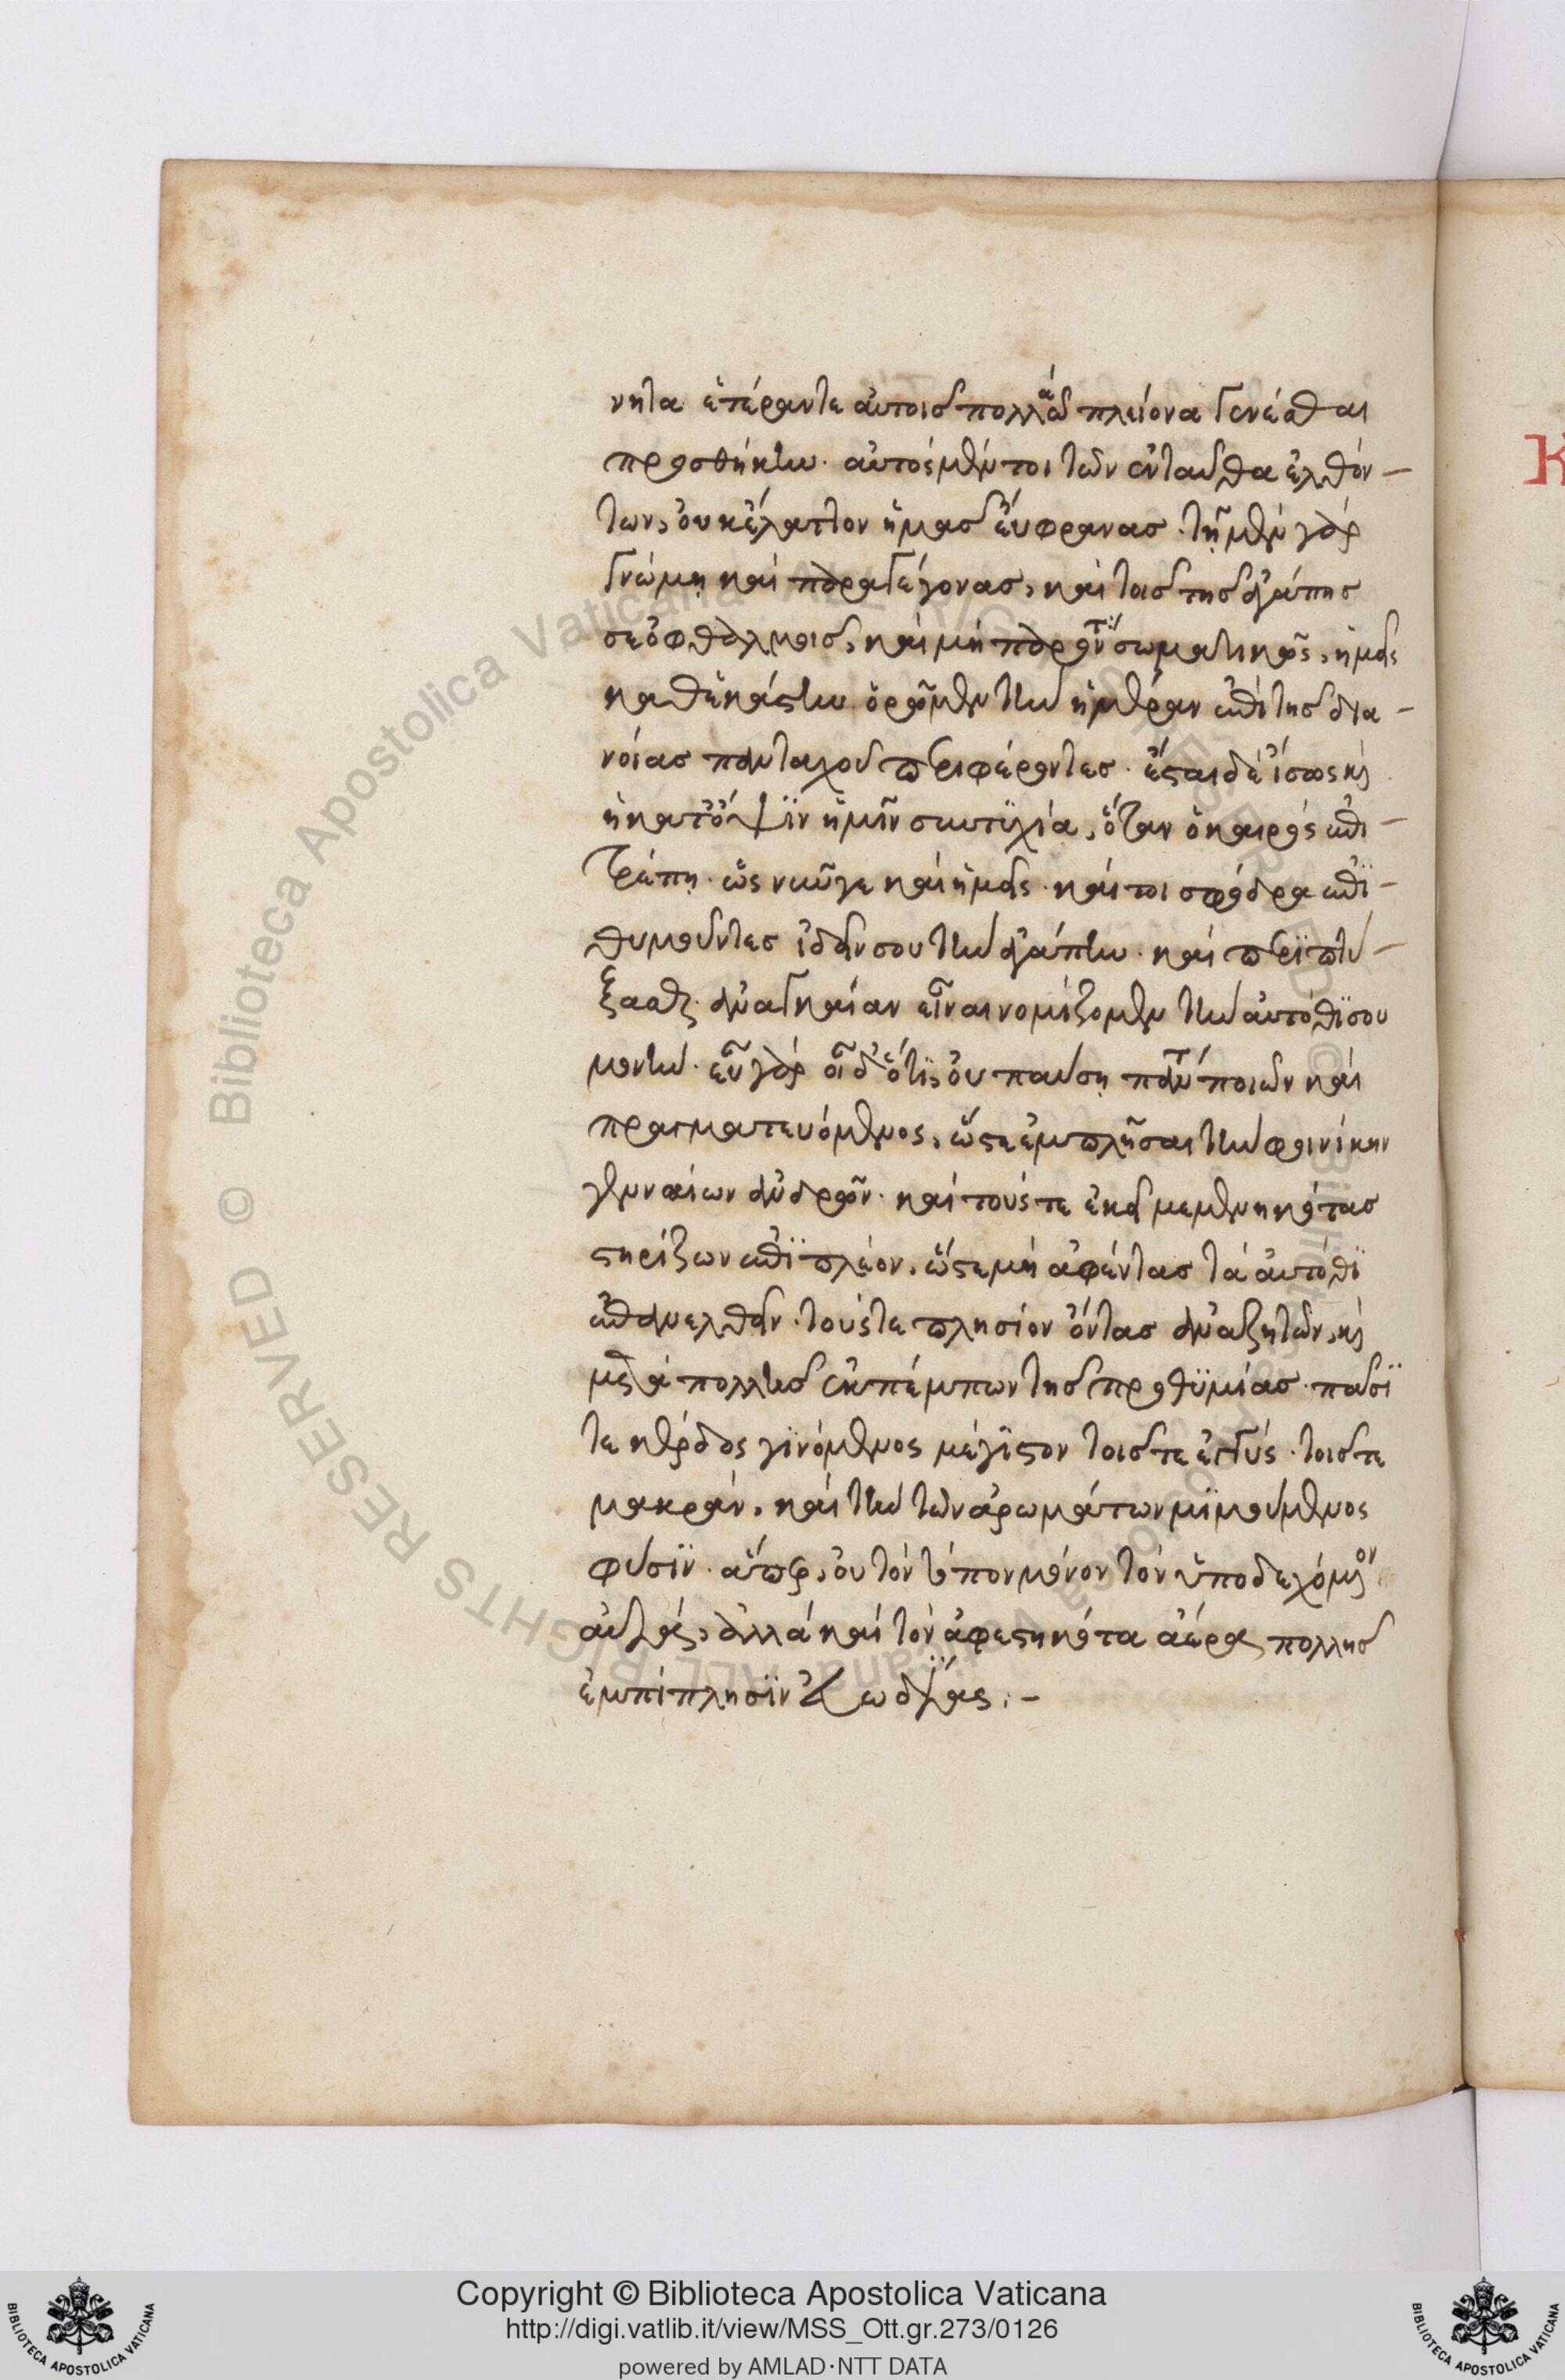 νητα ἑτέραν τε αὐτοῖς πολλάς πλείονα γενέσθαι
προσθήκην. αὐτὸς μέν τοι τῶν ἐνταῦθα ἐλθόν-
των, οὐκ ἔλαττον ἡμᾶς εὔφρανας. τῇ μὲν γὰρ
γνώμῃ καὶ παραγέγονας, καὶ τοῖς τῆς ἀγάπης
σε ὀφθαλμοῖς, καὶ μὴ παρόντα σωματικῶς, ἡμᾶς
καθ' ἑκάστην ὁρῶμεν τὴν ἡμέραν ἐπὶ τῆς δια-
νοίας πανταχοῦ περιφέροντες. ἔσται δὲ ἴσως καὶ
ἡ κατ' ὄψιν ἡμῖν συντυχία, ὅταν ὁ καιρὸς ἐπι-
τρέπῃ. ὡς νῦν γε καὶ ἡμᾶς. καί τοι σφόδρα ἐπι-
θυμοῦντες ἰδεῖν σου τὴν ἀγάπην. καὶ περιπτύ-
ξασθαι. ἀναγκαίαν εἶναι νομίζομεν τὴν αὐτόθι σου
μονήν. εὖ γὰρ οἶδ' ὅτι, οὐ παύσῃ πάντα ποιῶν καὶ
πραγματευόμενος, ὥστε ἐμπλῆσαι τὴν φοινίκην
γενναίων ἀνδρῶν. καὶ τούς τε ἐκεῖ μεμενηκότας
στηρίζων ἐπὶ πλέον, ὥστε μὴ ἀφέντας τὰ αὐτόθι
ἐπανελθεῖν. τούς τε πλησίον ὄντας ἀναζητῶν, καὶ
μετὰ πολλῆς ἐκπέμπων τῆς προθυμίας. πᾶσί
τε κέρδος γινόμενος μέγιστον τοῖς τε ἐγγύς. τοῖς τε
μακράν, καὶ τὴν τῶν ἀρωμάτων μιμούμενος
φύσιν. ἅπερ, οὐ τὸν τόπον μόνον τὸν ὑποδεχόμενον
αὐτάς, ἀλλὰ καὶ τὸν ἀφεστηκότα ἀέρα, πολλῆς
ἐμπίπλησιν εὐωδίας:-
Copyright © Biblioteca Apostolica Vaticana
http://digi.vatlib.it/view/MSS_Ott.gr.273/0126
powered by AMLAD·NTT DATA